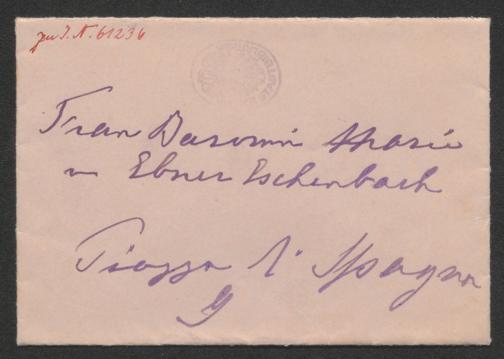 zu I. N. 61236
Frau Baronin Marie
v Ebner Eschenbach
Piazza di Spagna
9